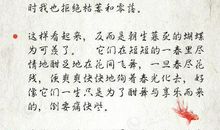 时我也拒绝枯萎和零落。
这样看起来，反而是朝生暮亚的蝴蝶
为可羡了。 它们在短短的一春里尽
情地酣足地在花间飞舞，一旦春尽花
残，便爽爽快快地殉着春光化去，好
像它们一生只是为了酣舞与享乐而来
的，倒要痛快些。